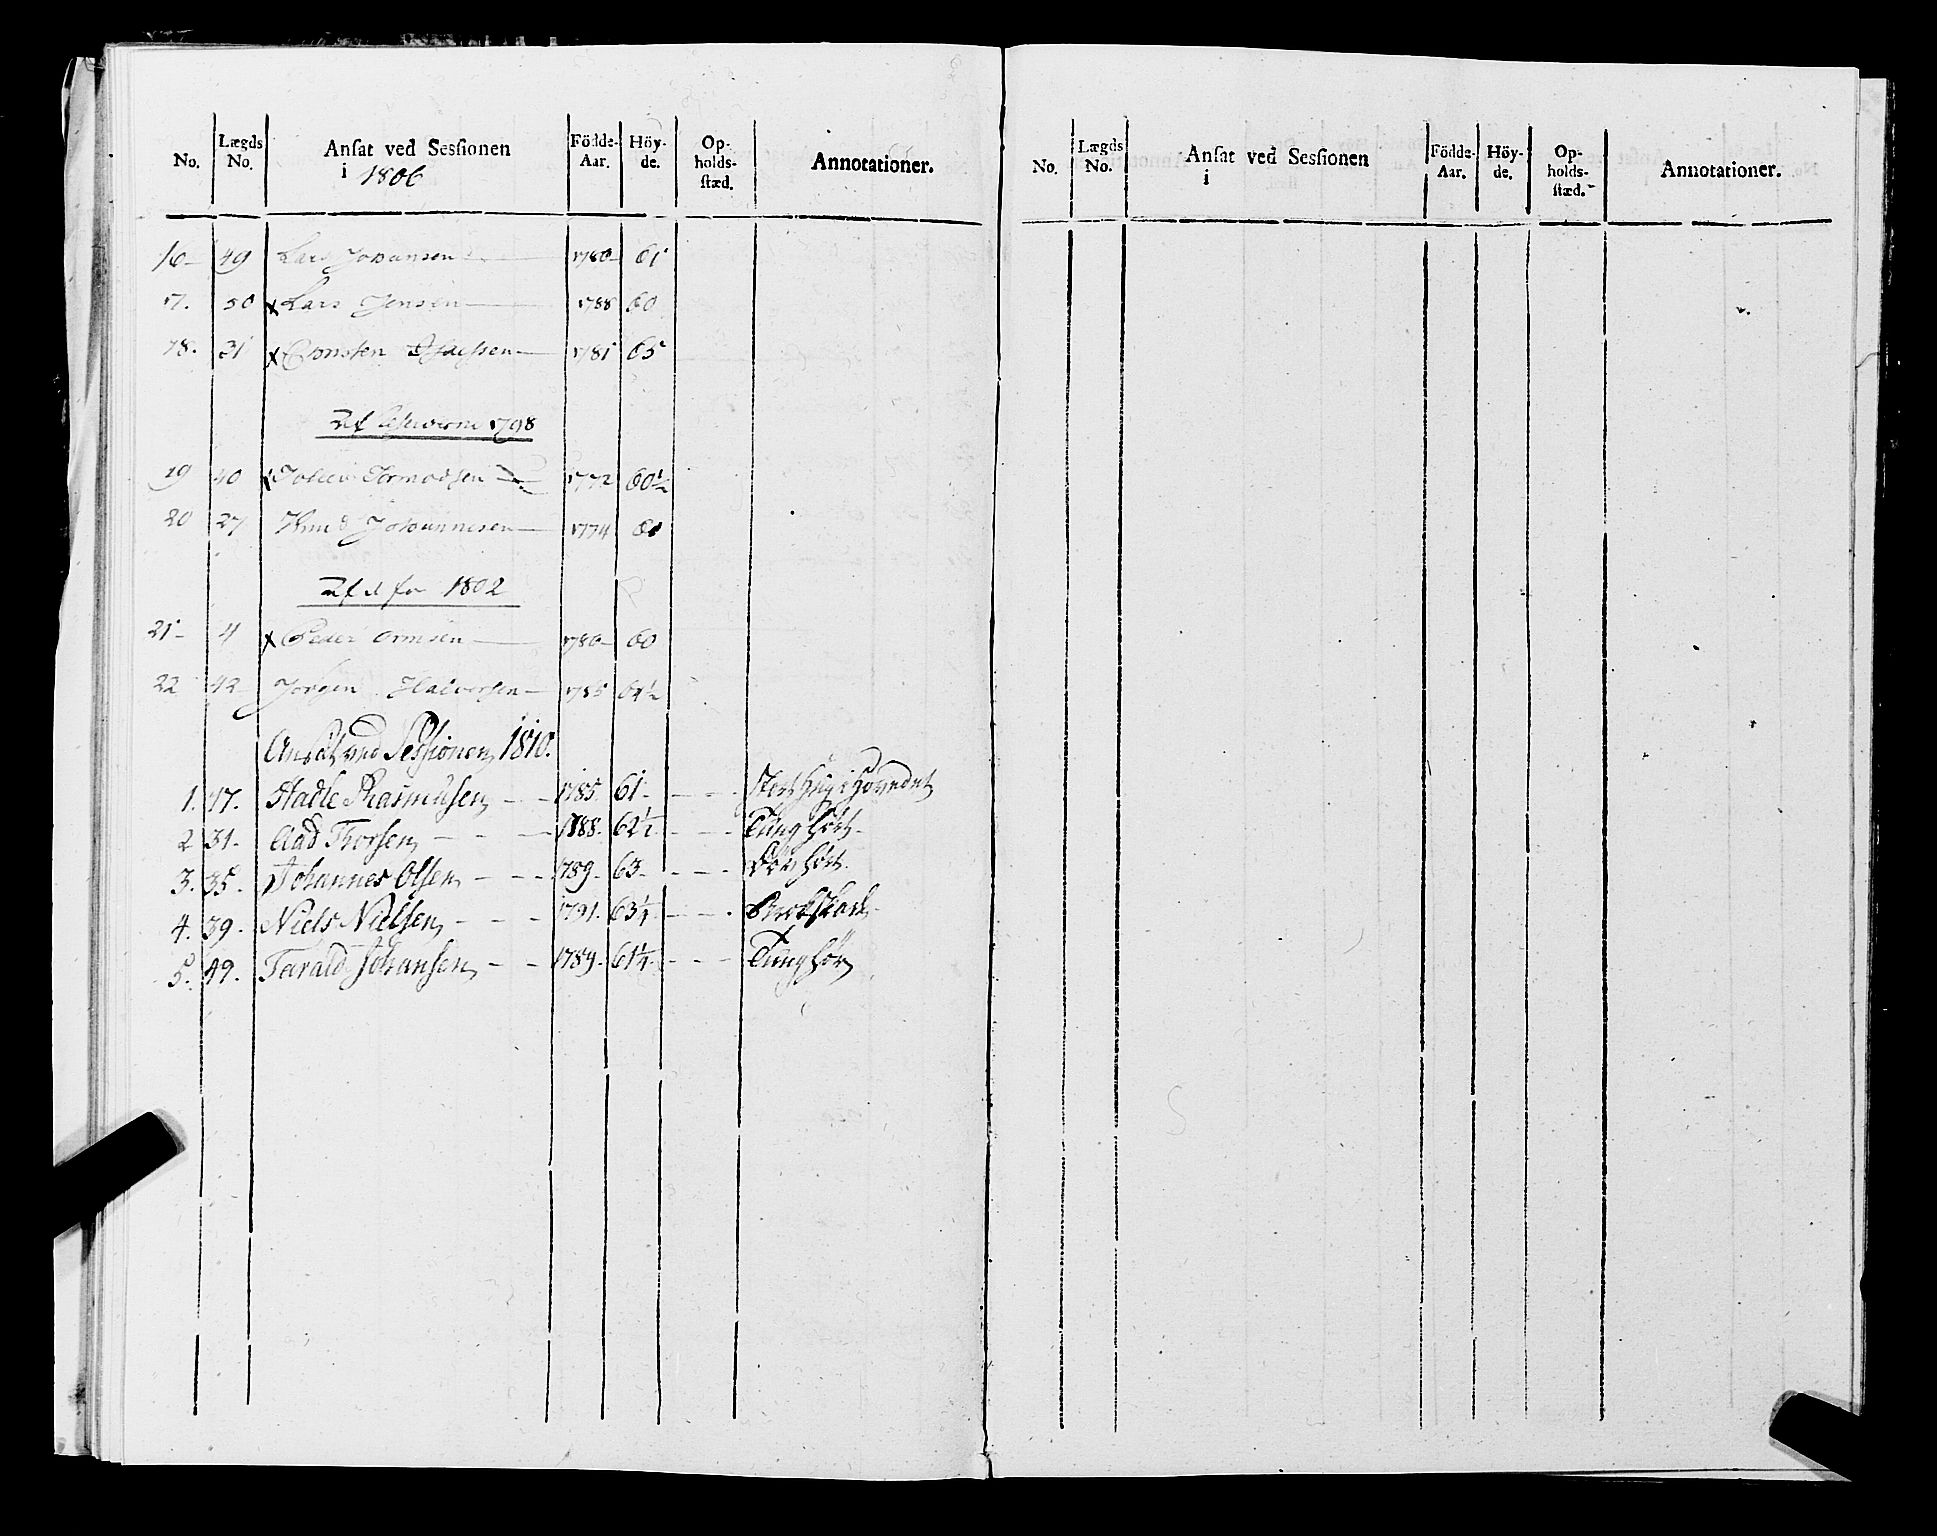 No. Lægds No. Ansat ved Sessionen i 1806 Födde-Aar. Höy-de. Op-holds-stæd. Annotationer.
16 - 49 Lars Johansen 1780 - 61
17. 50 x Lars Jensen 1788 60
18. 31 x 1781 65
Af 1798
19 40 Tormodsen 1772 60½
20 27 Knud Johannesen 1774
Af d for 1802
21 - 4 x Peder Ormsen 1780 - 60
22 42 Jörgen Halversen 1785 61½
Ansat ved Sessionen 1810.
1. 47. Rasmusen 1785 61 - i Hovedet
2 31. Aad Thorsen 1788. 62½ Tung hört -
3. 35. Johannes Olsen 1789 - 63 - Döv hört.
4. 39. Niels Nielsen 1791. 63¼ Brokskade
5. 49. Tarald Johansen 1789 - 61¼ Tunghör
No. Lægds No. Ansat ved Sessionen i Födde-Aar. Höy-de. Op-holds-stæd. Annotationer.